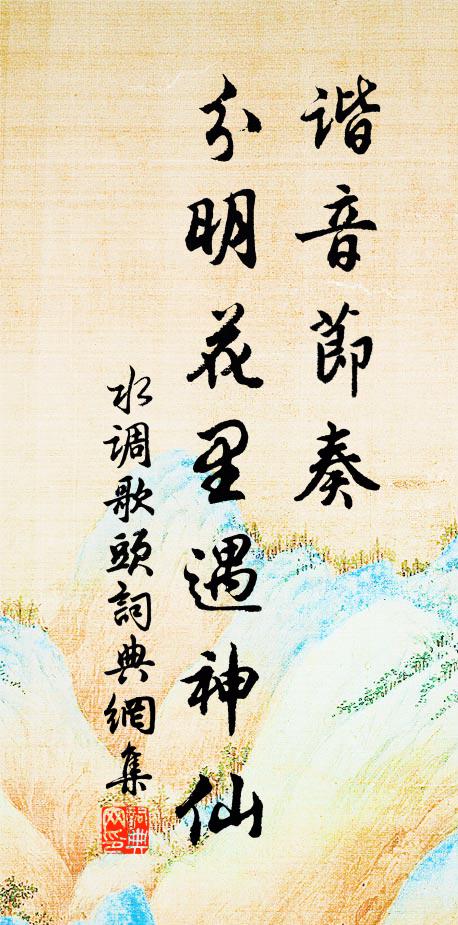 谐音節奏
分明花里遇神仙
水调歌頭詞典網集
詞典网印